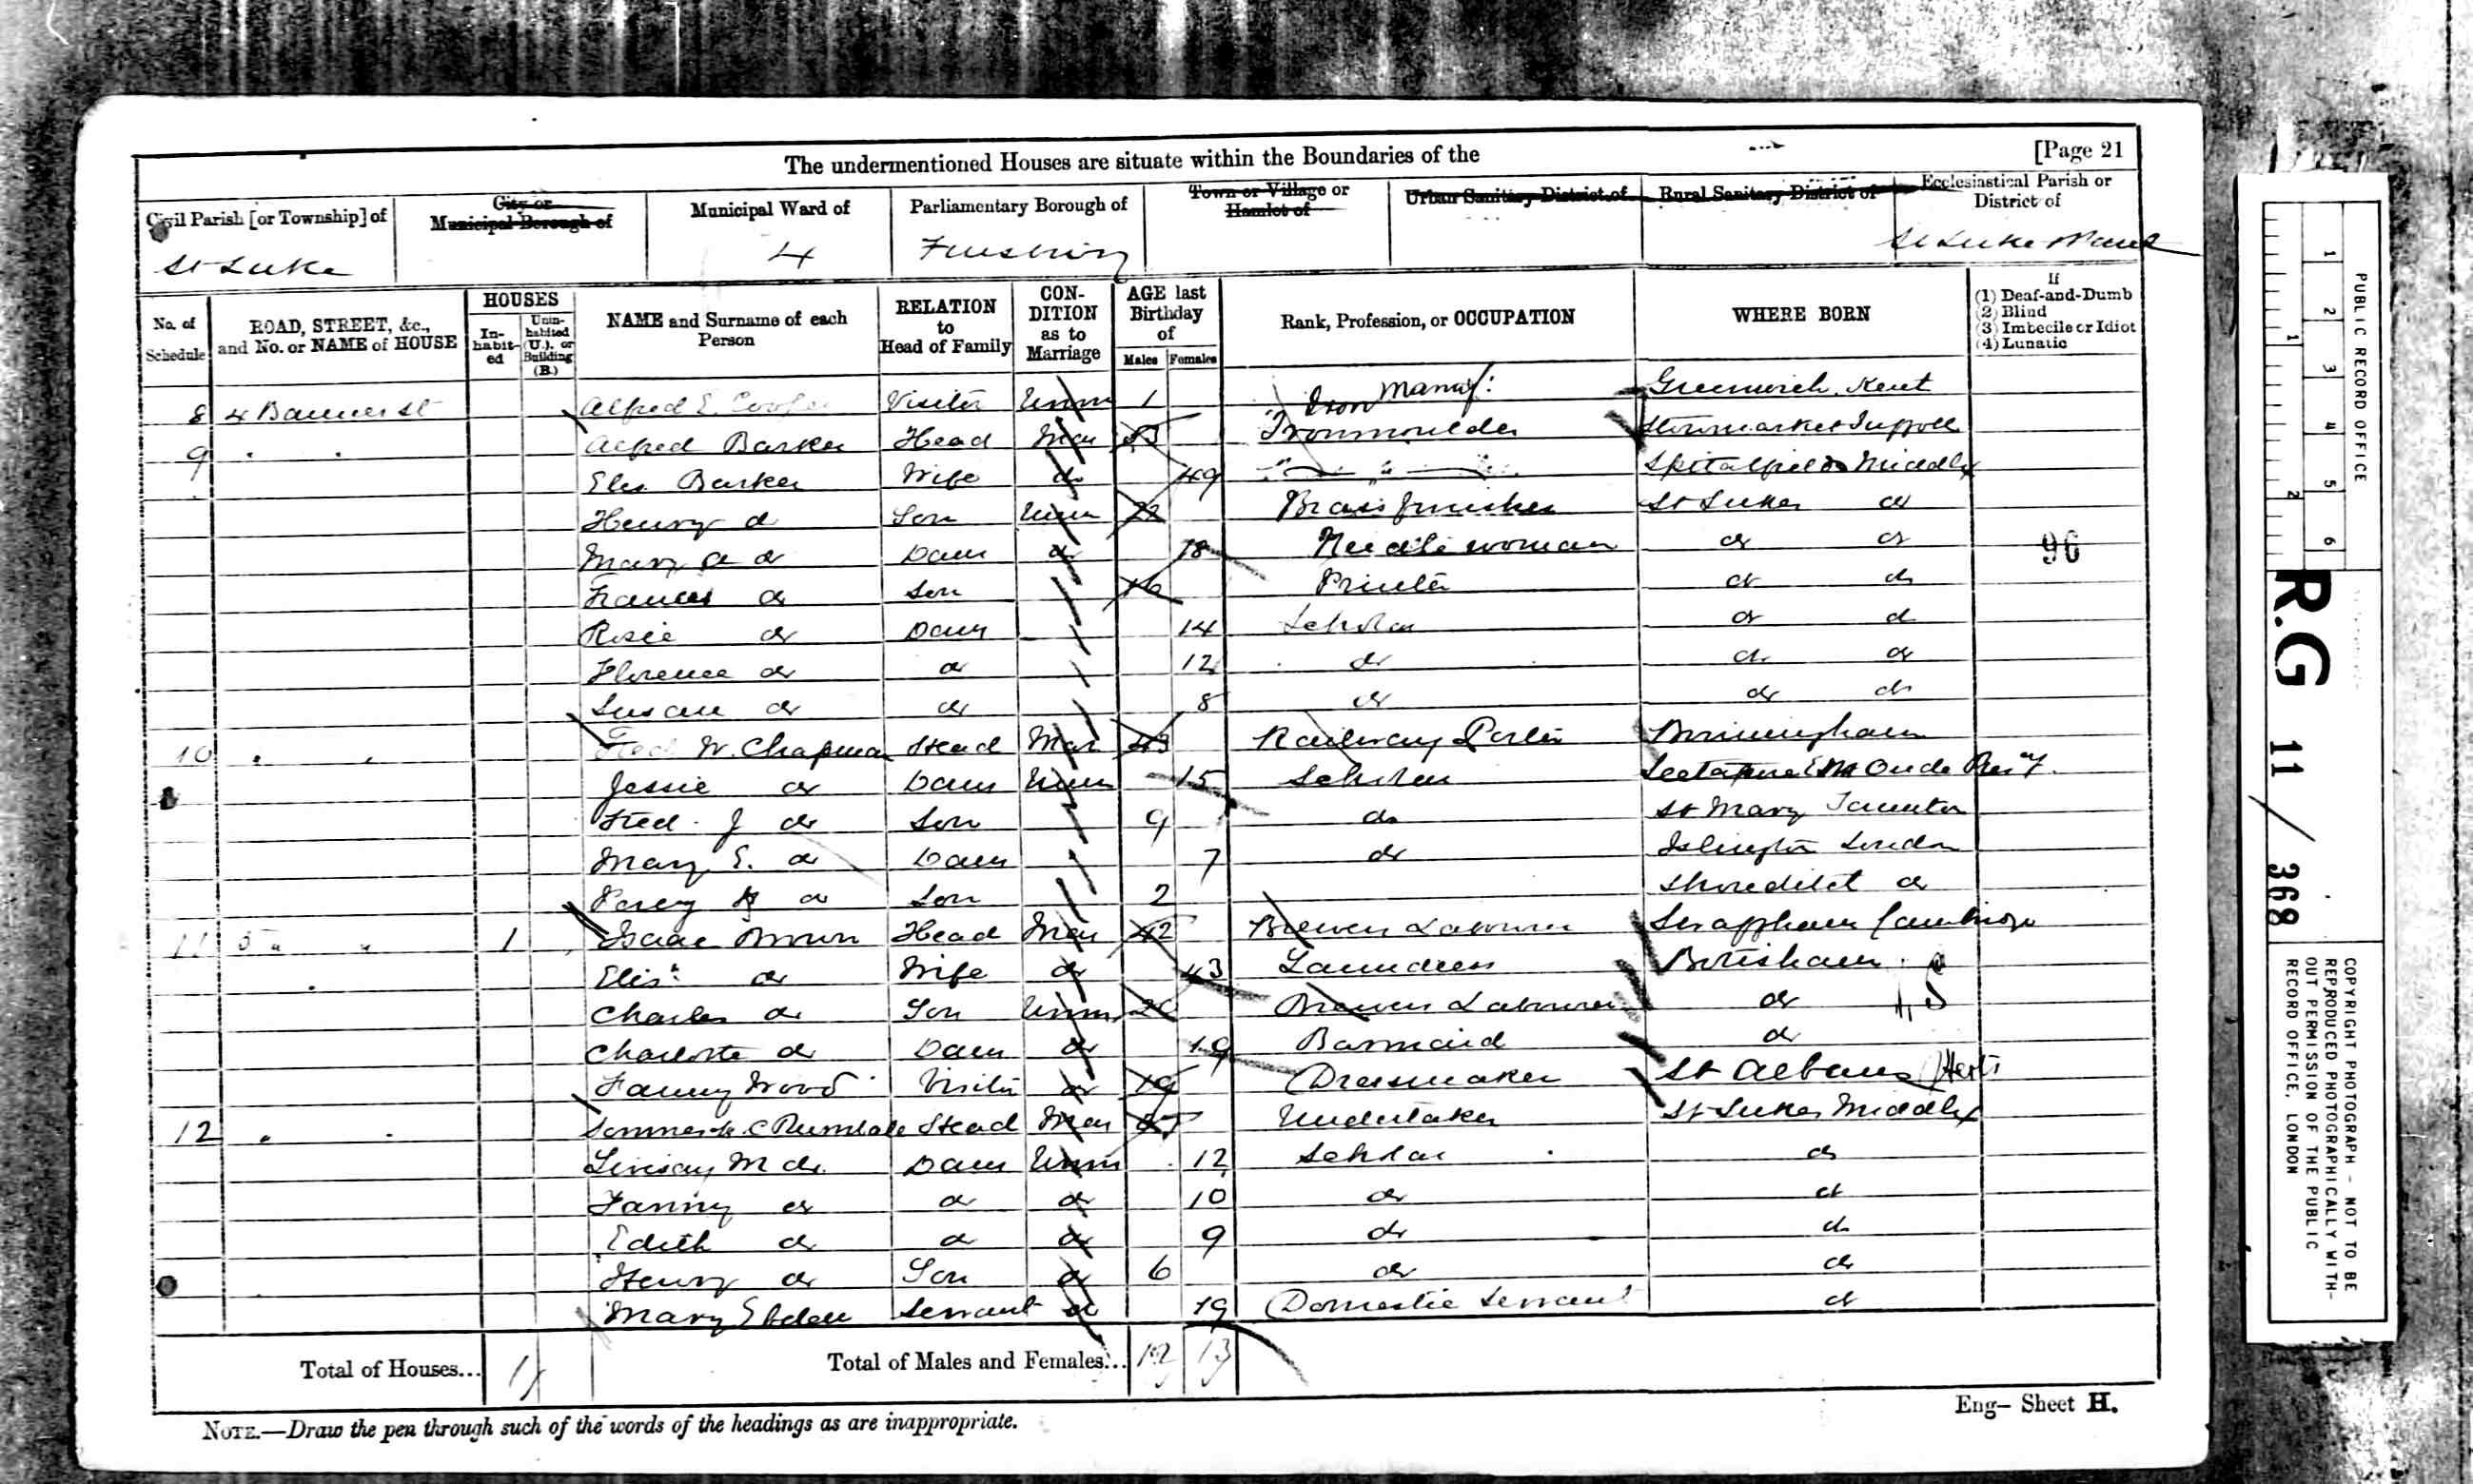 The undermentioned Houses are situate within the Boundaries of the [Page 21
Civil Parish [or Township] of City or Municipal Borough of Municipal Ward of Parliamentary Borough of Town or Village or Hamlet of Urban Sanitary District of Rural Sanitary District of Ecclesiastical Parish or District of
St Luke 4 Finsbury St Luke
No. of Schedule ROAD, STREET, &c., and No. or NAME of HOUSE HOUSES Inhabited Uninhabited (U.), or Building (B.) NAME and Surname of each Person RELATION to Head of Family CONDITION as to Marriage AGE last Birthday of Males Females Rank, Profession, or OCCUPATION WHERE BORN If (1) Deaf-and-Dumb (2) Blind (3) Imbecile or Idiot (4) Lunatic
8 4 Banner St Alfred E. Visitor Unm 1 Greenwich Kent
Iron Manuf:
9 " " Alfred Barker Head Mar Ironmoulder Stowmarket Suffolk
Barker Wife do 49 Spitalfields Middlx
Henry do Son Unm 22 Brass finisher St Lukes do
Mary A do Daur do 18 Needlewoman do do
96
Frances do Son 16 Printer do do
Rosie do Daur 14 Scholar do do
Florence do do 12 do do do
Susan do do 8 do do do
10 " " W. Chapman Head Mar 43 Railway Porter Birmingham
Jessie do Daur Unm 15 Scholar Oude
Fred. J do Son 9 do St Mary Taunton
Mary E. do Daur 7 do Islington London
Percy do Son 2 Shoreditch do
11 5 " " 1 Isaac Brown Head Mar 42 Brewers Labourer
" Elizh do Wife do 43 Laundress
Charles do Son Unm Brewers Labourer do
Charlotte do Daur do 19 Barmaid do
Fanny Wood Visitor do 19 Dressmaker St Albans Herts
12 " " C Head Mar Undertaker St Lukes Middlx
M do Daur Unm 12 Scholar do
Fanny do do do 10 do do
Edith do do do 9 do do
Henry do Son do 6 do do
Mary Servant do 19 Domestic Servant do
Total of Houses... 1 Total of Males and Females... 12 13
Eng- Sheet H.
NOTE.—Draw the pen through such of the words of the headings as are inappropriate.
PUBLIC RECORD OFFICE
1 2 3 4 5 6
1 2
R.G 11 / 368
COPYRIGHT PHOTOGRAPH - NOT TO BE
REPRODUCED PHOTOGRAPHICALLY WITH-
OUT PERMISSION OF THE PUBLIC
RECORD OFFICE, LONDON